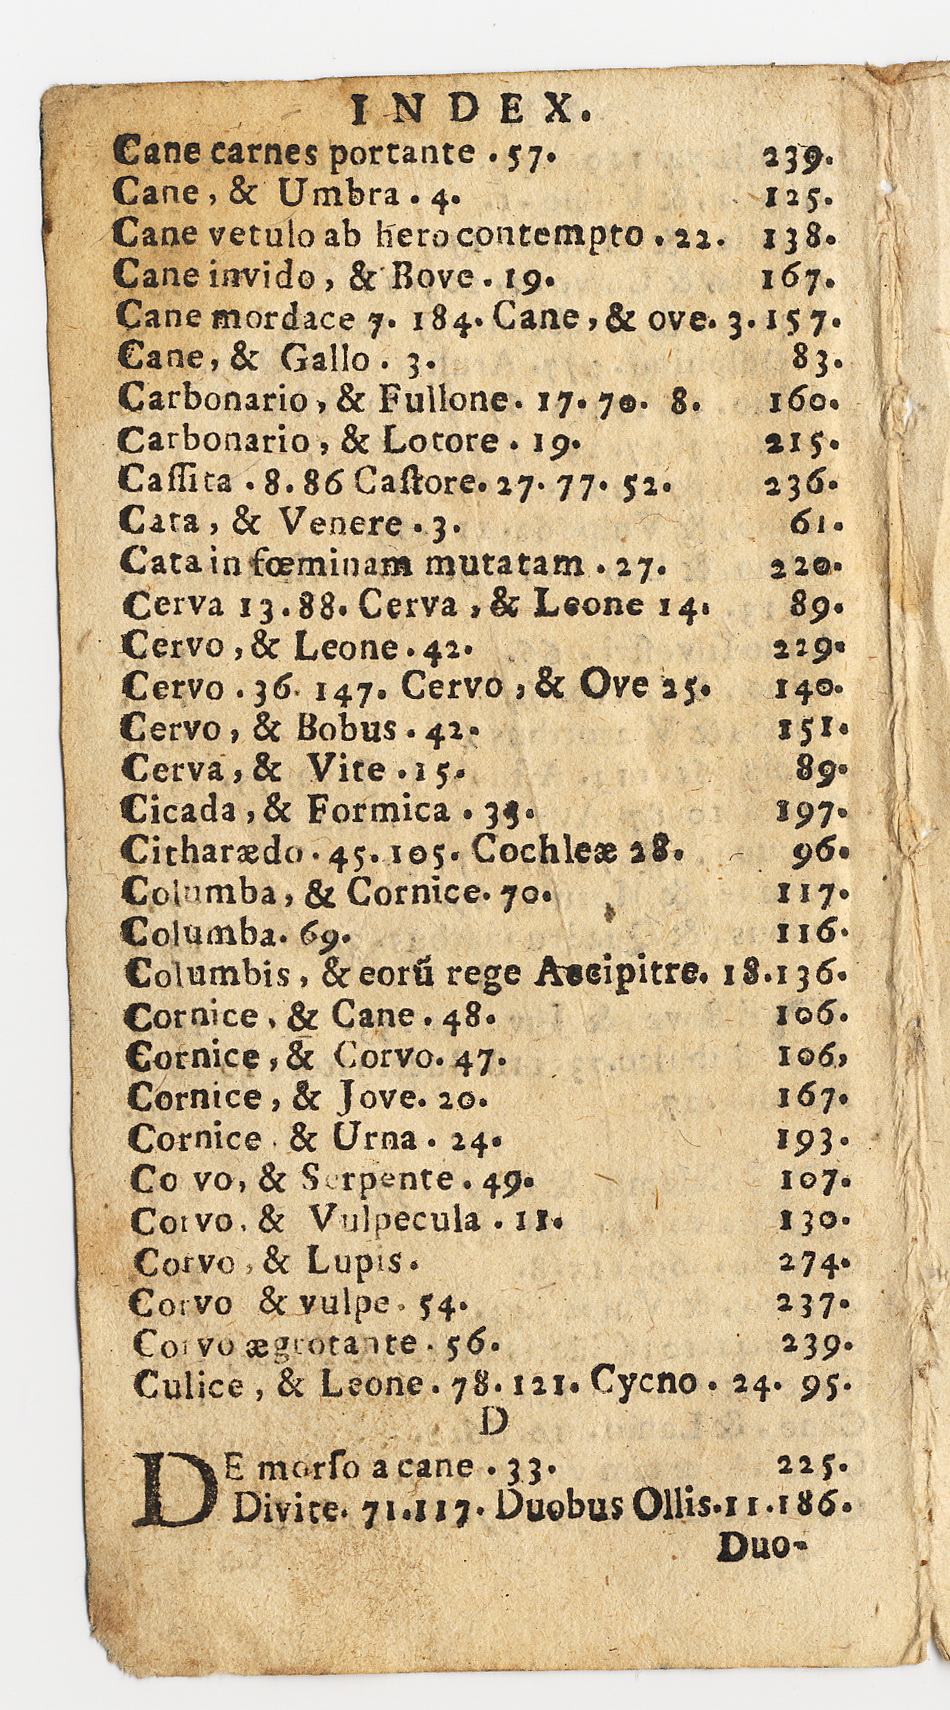 INDEX.
Cane carnes portante . 57. 239.
Cane, & Umbra . 4. 125.
Cane vetulo ab hero contempto . 22. 138.
Cane invido, & Bove . 19. 167.
Cane mordace 7. 184. Cane, & ove. 3. 157.
Cane, & Gallo . 3. 83.
Carbonario, & Fullone. 17. 70. 8. 160.
Carbonario, & Lotore . 19. 215.
Caſſita . 8. 86 Caſtore. 27. 77. 52. 236.
Cata, & Venere . 3. 61.
Cata in fœminam mutatam . 27. 220.
Cerva 13. 88. Cerva, & Leone 14. 89.
Cervo, & Leone . 42. 229.
Cervo . 36. 147. Cervo, & Ove 25. 140.
Cervo, & Bobus . 42. 151.
Cerva, & Vite . 15. 89.
Cicada, & Formica . 197.
Citharædo . 45. 105. Cochleæ 28. 96.
Columba, & Cornice. 70. 117.
Columba. 69. 116.
Columbis, & eorũ rege Accipitre. 18. 136.
Cornice, & Cane . 48. 106.
Cornice, & Corvo. 47. 106,
Cornice, & Jove. 20. 167.
Cornice . & Urna . 24. 193.
Co vo, & Serpente . 49. 107.
Corvo. & Vulpecula . 11. 130.
Corvo, & Lupis. 274.
Corvo & vulpe. 54. 237.
Corvo ægrotante . 56. 239.
Culice, & Leone. 78. 121. Cycno . 24. 95.
D
DE morſo a cane . 33. 225.
Divite. 71. 117. Duobus Ollis. 11. 186.
Duo-